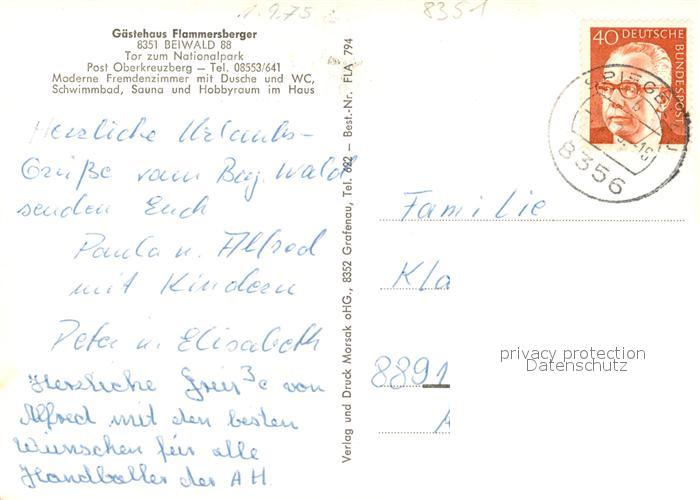 1.9.75
8351
Gästehaus Flammersberger
8351 BEIWALD 88
Tor zum Nationalpark
Post Oberkreuzberg – Tel. 08553/641
Moderne Fremdenzimmer mit Dusche und WC,
Schwimmbad, Sauna und Hobbyraum im Haus
Herzliche Urlaubs-
Grüße vom Bay. Wald
senden Euch
Paula u. Alfred
mit Kindern
Peter u. Elisabeth
Herzliche Grüße von
Alfred mit den besten
Wünschen für alle
Handballer der AH.
Verlag und Druck Morsak oHG., 8352 Grafenau, Tel. 622 – Best.-Nr. FLA 794
40 DEUTSCHE
BUNDESPOST
8356
Familie
Kla
8891
privacy protection
Datenschutz